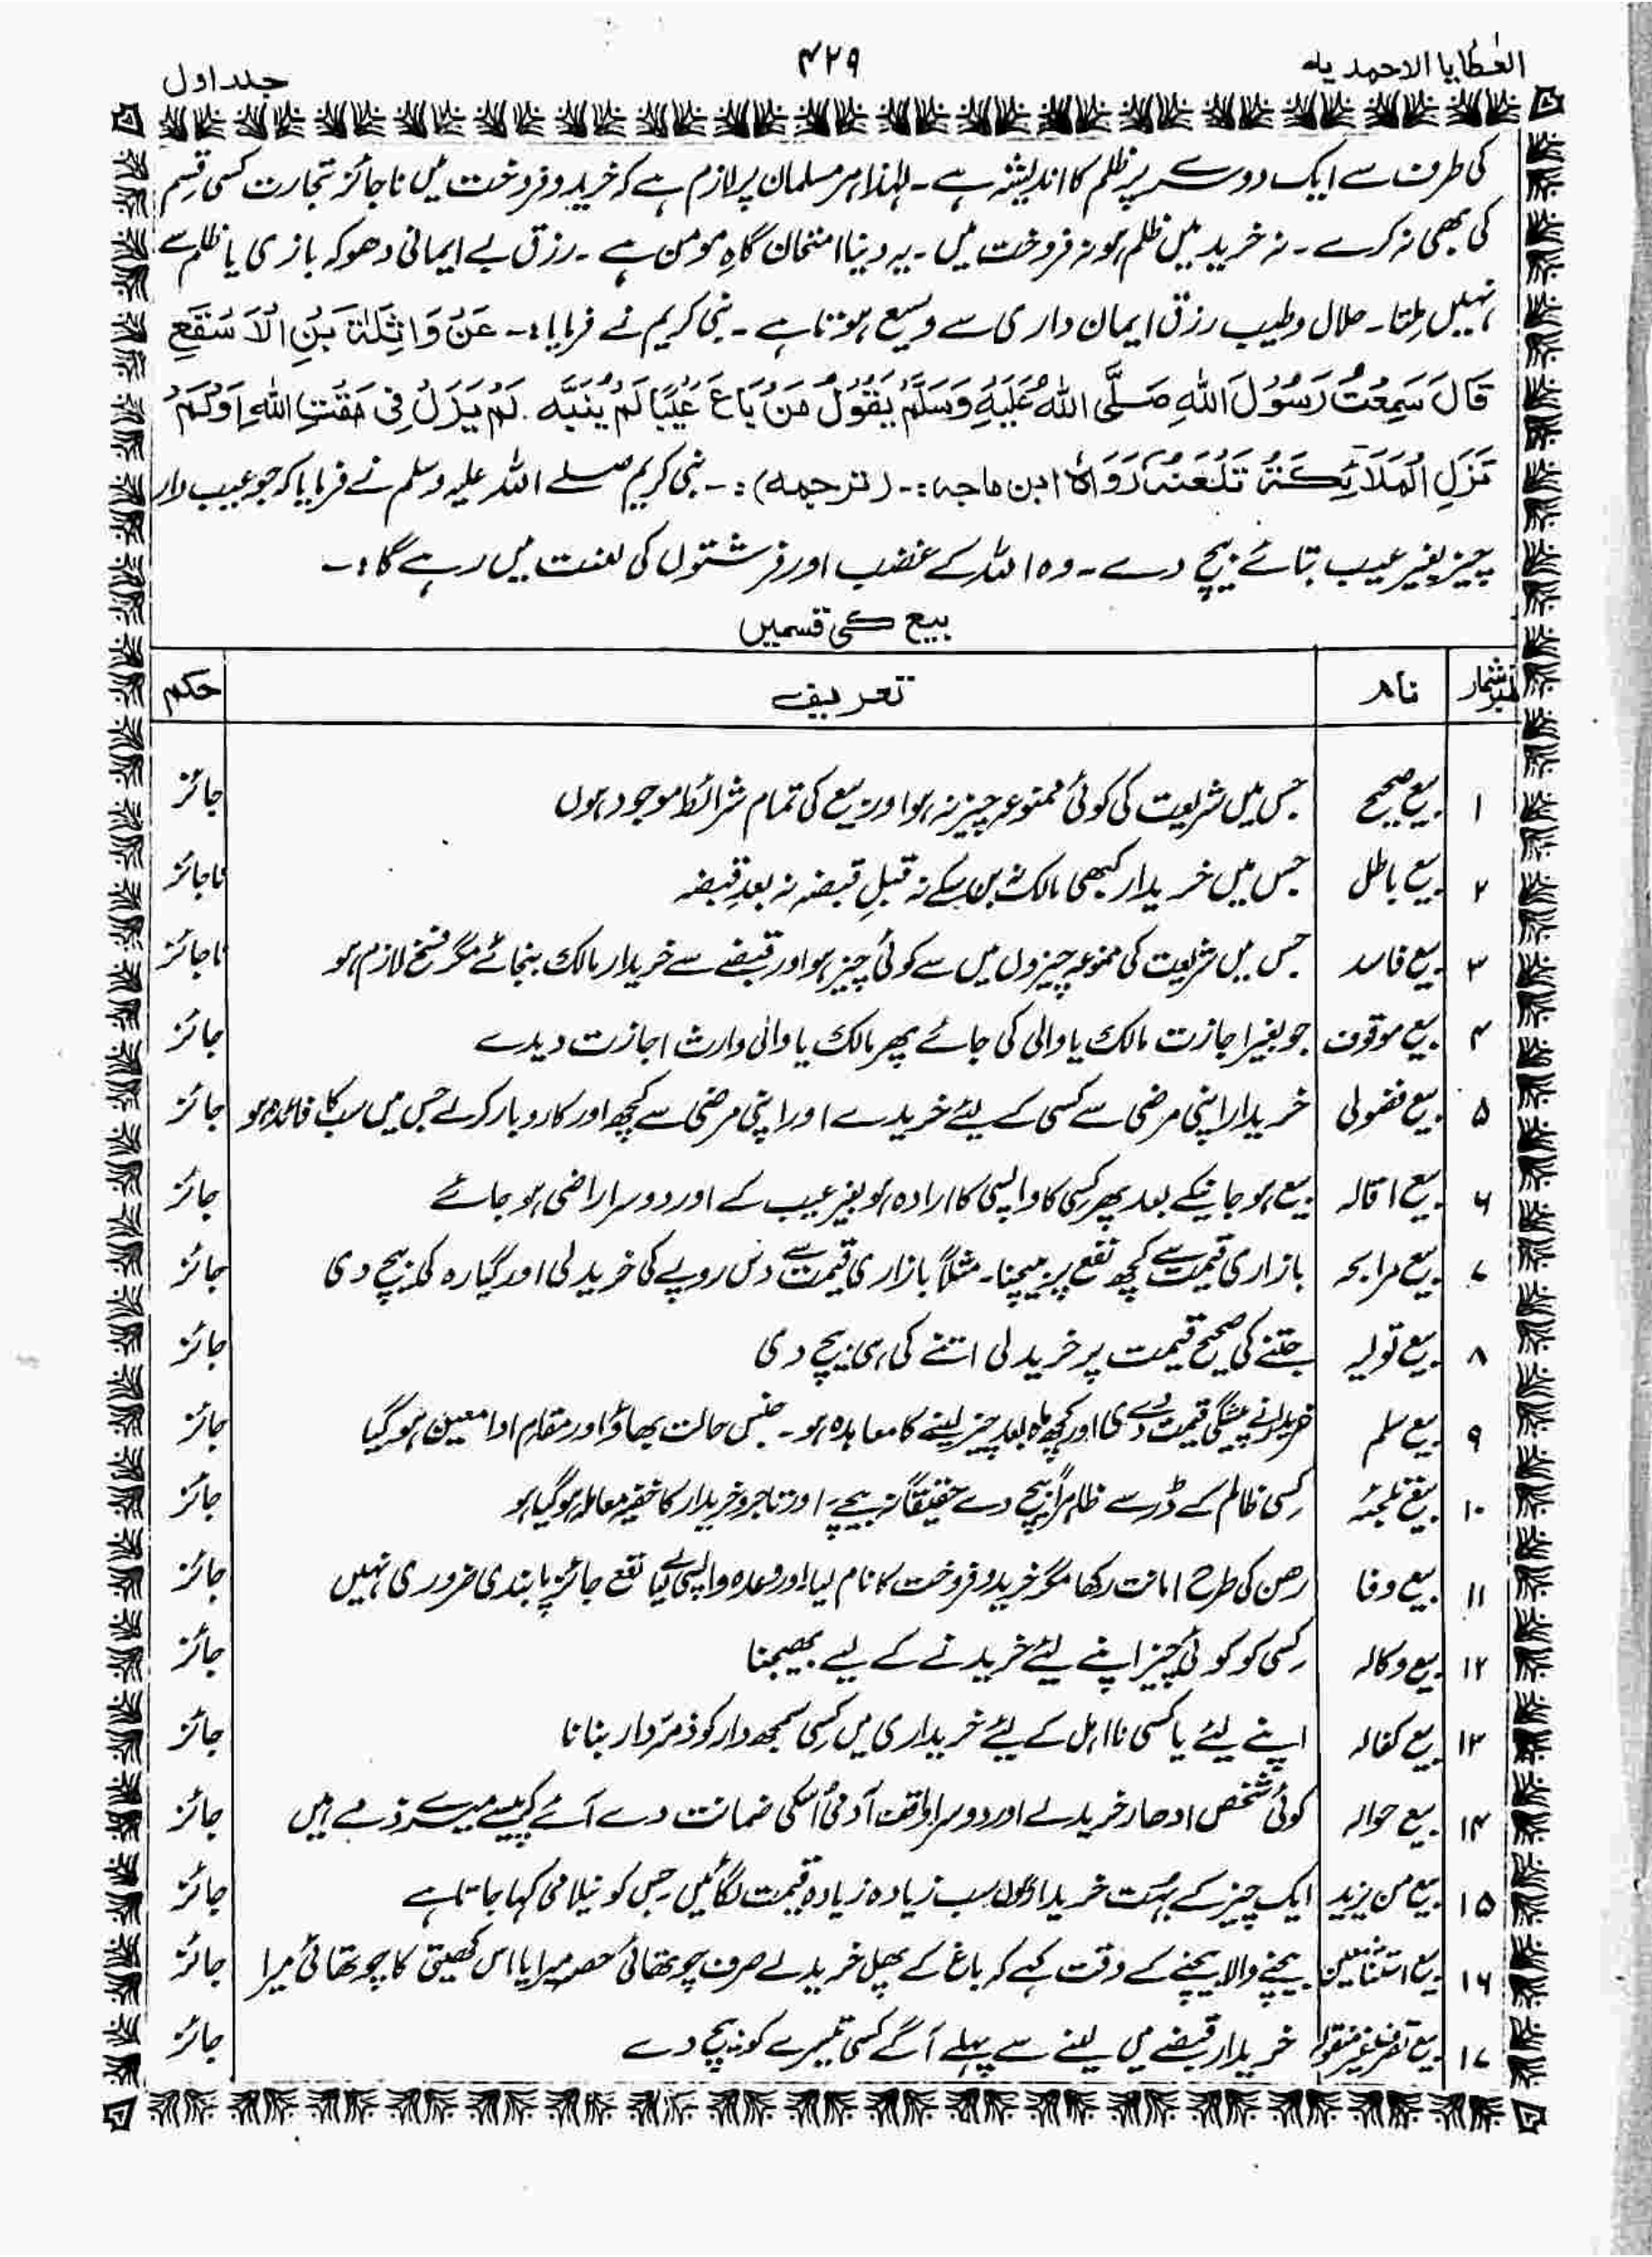 العطایا الاحمدیہ
۴۲۹
جلد اول
کی طرف سے ایک دوسرے پر ظلم کا اندیشہ ہے۔ لہٰذا ہر مسلمان پر لازم ہے کہ خرید و فروخت میں ناجائز تجارت کسی قسم
کی بھی نہ کرے۔ نہ خرید میں ظلم ہو نہ فروخت میں۔ یہ دنیا امتحان گاہِ مومن ہے۔ رزق بے ایمانی دھوکہ بازی یا ظلم سے
نہیں ملتا۔ حلال و طیب رزق ایمان داری سے وسیع ہوتا ہے۔ نبی کریم نے فرمایا:۔ عَنْ وَاثِلَةَ بَنِ الْاَسْقَعِ
قَالَ سَمِعْتُ رَسُوْلَ اللهِ صَلَّى اللهُ عَلَيْهِ وَسَلَّمَ يَقُوْلُ مَنْ بَاعَ عَيْبًا لَمْ يُنَبِّه۔ لَمْ يَزَلْ فِى مَقْتِ اللهِ اَوْ لَمْ
تَزَلِ الْمَلَائِكَةُ تَلْعَنُه رَوَاهُ ابن ماجہ:۔ (ترجمہ):۔ نبی کریم صلے اللہ علیہ وسلم نے فرمایا کہ جو عیب دار
چیز بغیر عیب بتائے بیچ دے۔ وہ اللہ کے غضب اور فرشتوں کی لعنت میں رہے گا:۔
بیع کی قسمیں
نمبر شمار نام تعریف حکم
۱ بیع صحیح جس میں شریعت کی کوئی ممنوعہ چیز نہ ہو اور بیع کی تمام شرائط موجود ہوں جائز
۲ بیع باطل جس میں خریدار کبھی مالک نہ بن سکے نہ قبلِ قبضہ نہ بعدِ قبضہ ناجائز
۳ بیع فاسد جس میں شریعت کی ممنوعہ چیزوں میں سے کوئی چیز ہو اور قبضے سے خریدار مالک بنجائے مگر فسخ لازم ہو ناجائز
۴ بیع موقوف جو بغیر اجازت مالک یا والی کی جائے پھر مالک یا والی وارث اجازت دیدے جائز
۵ بیع فضولی خریدار اپنی مرضی سے کسی کے لیئے خریدے اور اپنی مرضی سے کچھ اور کاروبار کرلے جس میں سب کا فائدہ ہو جائز
۶ بیع اقالہ بیع ہو جانیکے بعد پھر کسی کا واپسی کا ارادہ ہو بغیر عیب کے اور دوسرا راضی ہو جائے جائز
۷ بیع مرابحہ بازاری قیمت سے کچھ نفع پر بیچنا۔ مثلاً بازاری قیمت سے دس روپے کی خرید لی اور گیارہ کی بیچ دی جائز
۸ بیع تولیہ جتنے کی صحیح قیمت پر خرید لی اتنے کی ہی بیچ دی جائز
۹ بیع سلم خریدار نے پیشگی قیمت دے دی اور کچھ ماہ بعد چیز لینے کا معاہدہ ہو۔ جنس حالت بھاؤ اور مقامِ ادا معین ہو گیا جائز
۱۰ بیع تلجئہ کسی ظالم کے ڈر سے ظاہراً بیچ دے حقیقتاً نہ بیچے اور تاجر و خریدار کا خفیہ معاملہ ہو گیا ہو جائز
۱۱ بیع وفا رھن کی طرح امانت رکھا مگر خرید و فروخت کا نام لیا اور وعدہ واپسی لے لیا نفع جائز پابندی ضروری نہیں جائز
۱۲ بیع وکالہ کسی کو کوئی چیز اپنے لیئے خریدنے کے لیے بھیجنا جائز
۱۳ بیع کفالہ اپنے لیئے یا کسی نااہل کے لیئے خریداری میں کسی سمجھ دار کو ذمّہ دار بنانا جائز
۱۴ بیع حوالہ کوئی شخص ادھار خریدے اور دوسرا واقف آدمی اُسکی ضمانت دے آئے کہ پیسے میرے ذمے ہیں جائز
۱۵ بیع من یزید ایک چیز کے بہت خریدار ہوں سب زیادہ زیادہ قیمت لگائیں جس کو نیلامی کہا جاتا ہے جائز
۱۶ بیع بیچنے والا بیچنے کے وقت کہے کہ باغ کے پھل خریدلے صرف چوتھائی حصہ میرا یا اس کھیتی کا چوتھائی میرا جائز
۱۷ بیع غیر منقولہ خریدار قبضے میں لینے سے پہلے آگے کسی تیسرے کو بیچ دے جائز